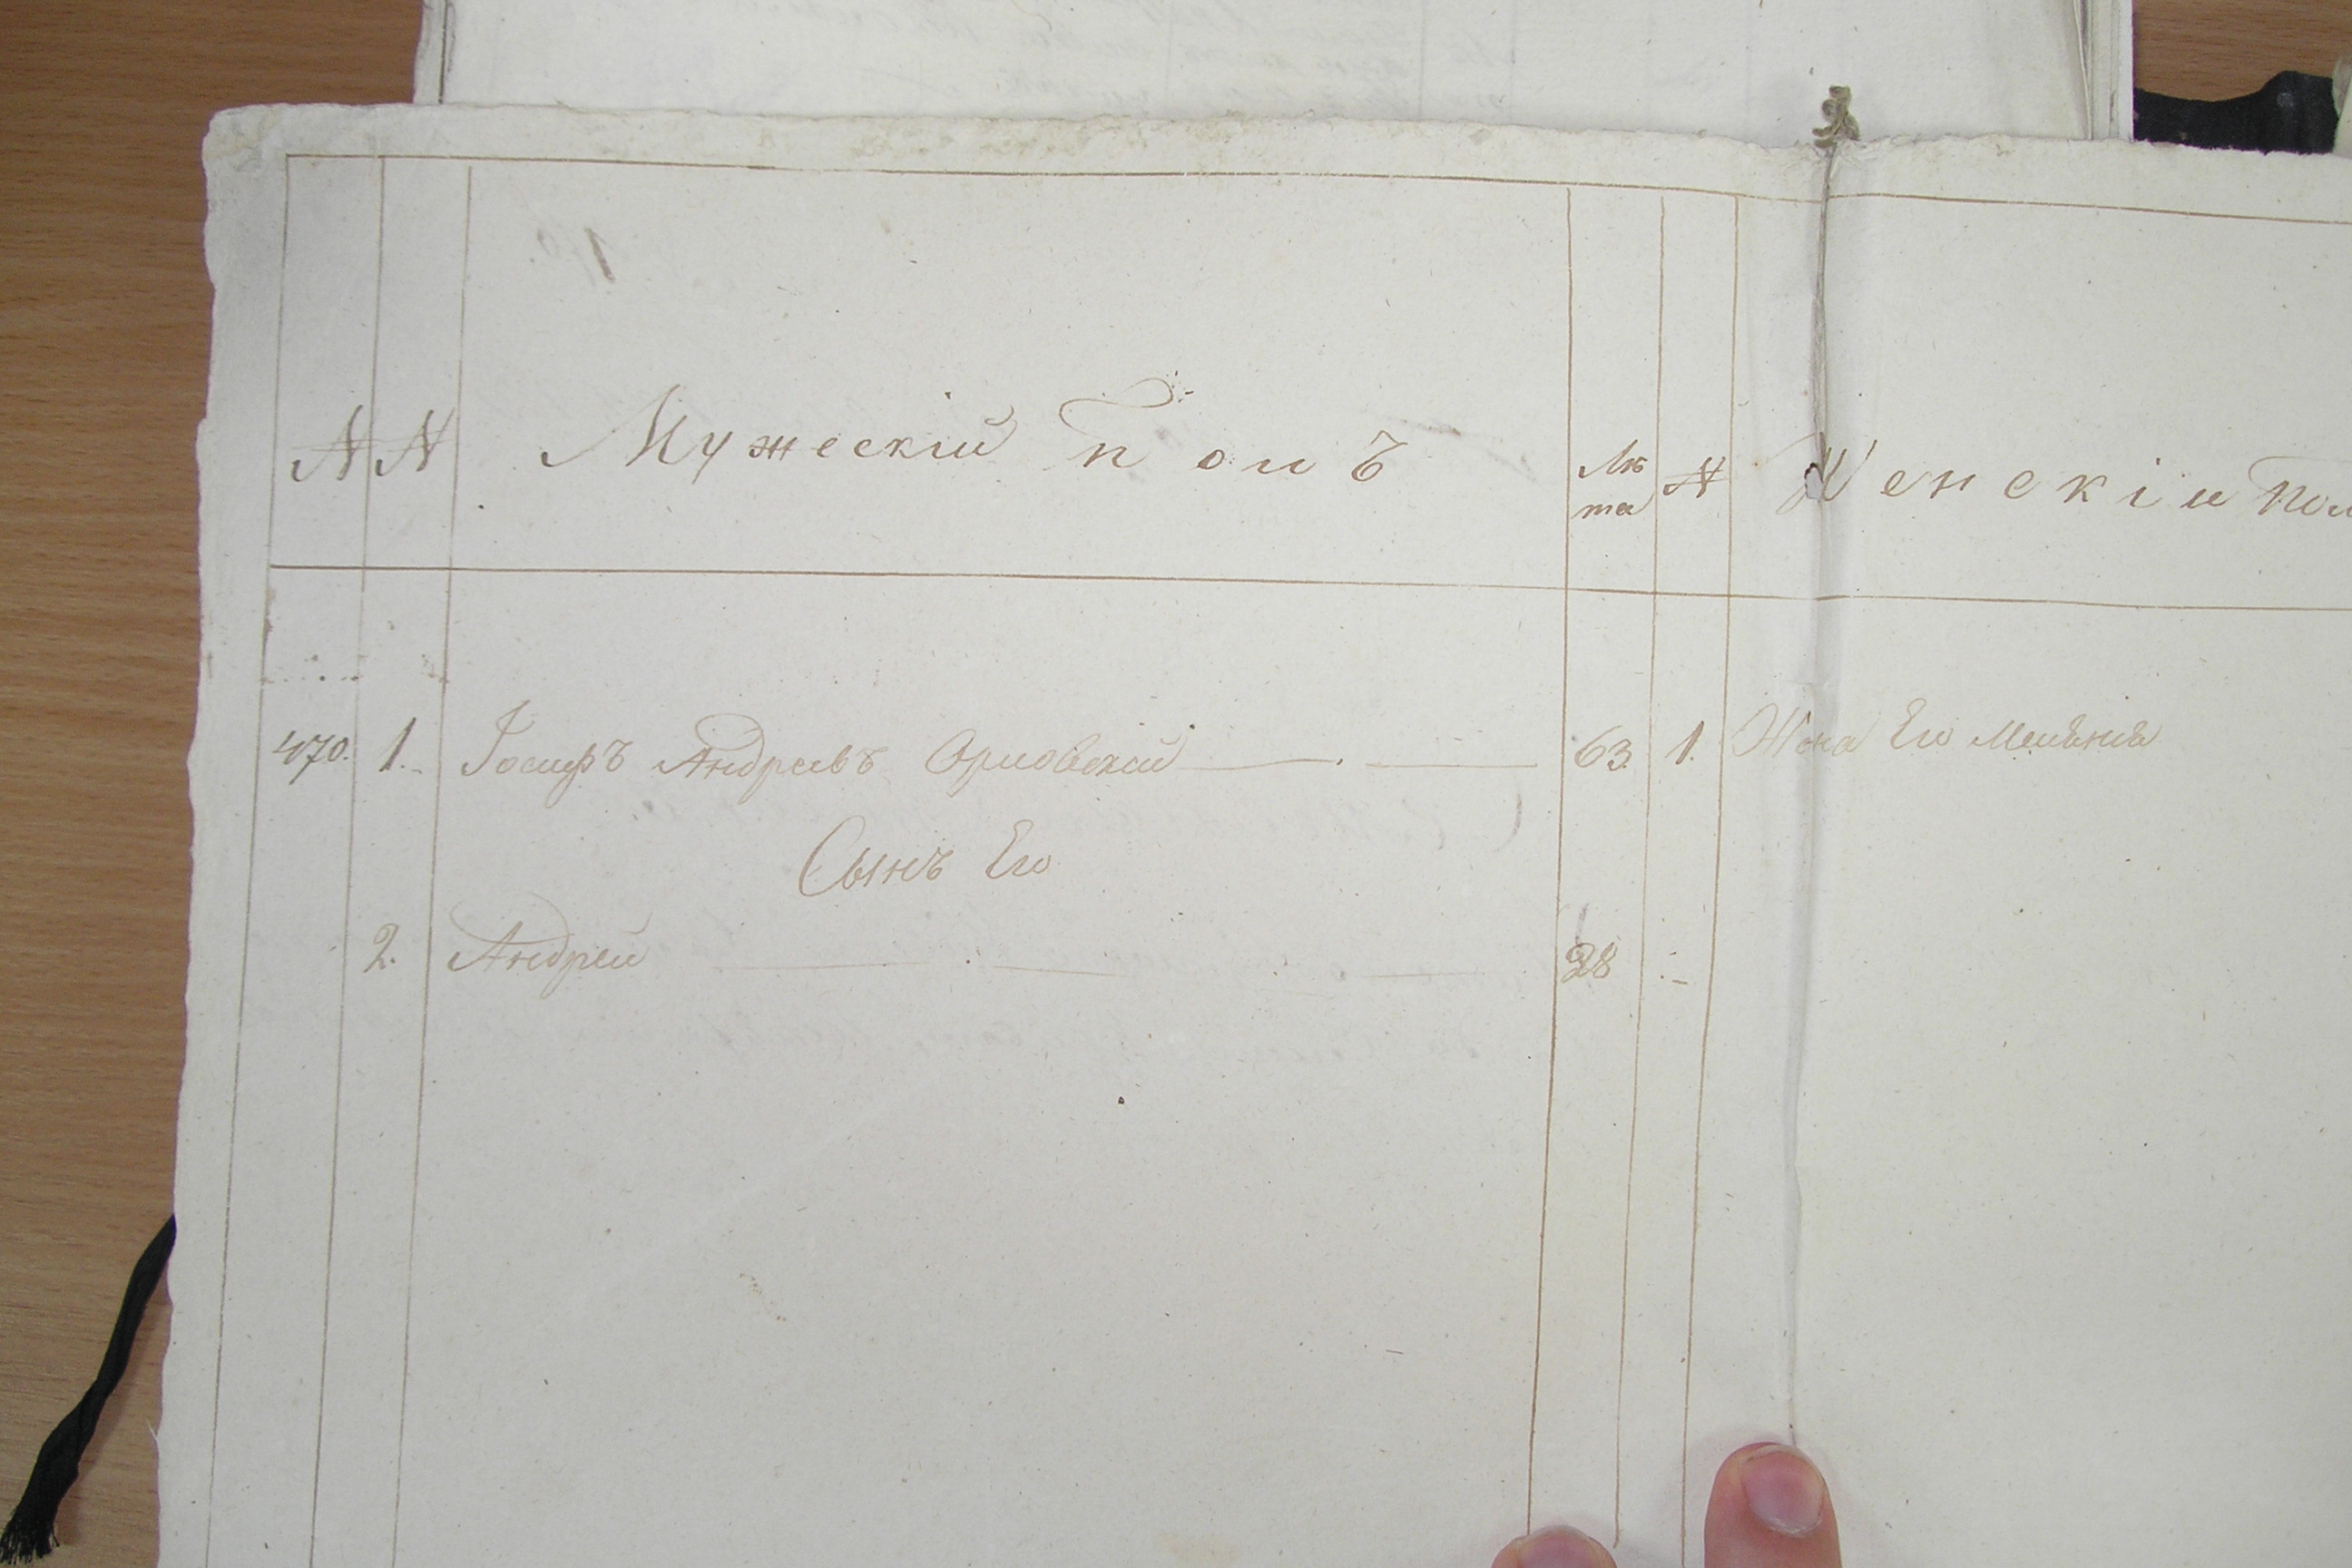 № № Мужескій полъ Лѣ та № Женскій пол
470. 1. Іосифъ Андреевъ Орловскій 63. 1. Жена Его Меланія
Сынъ Его
2. Андрей 28